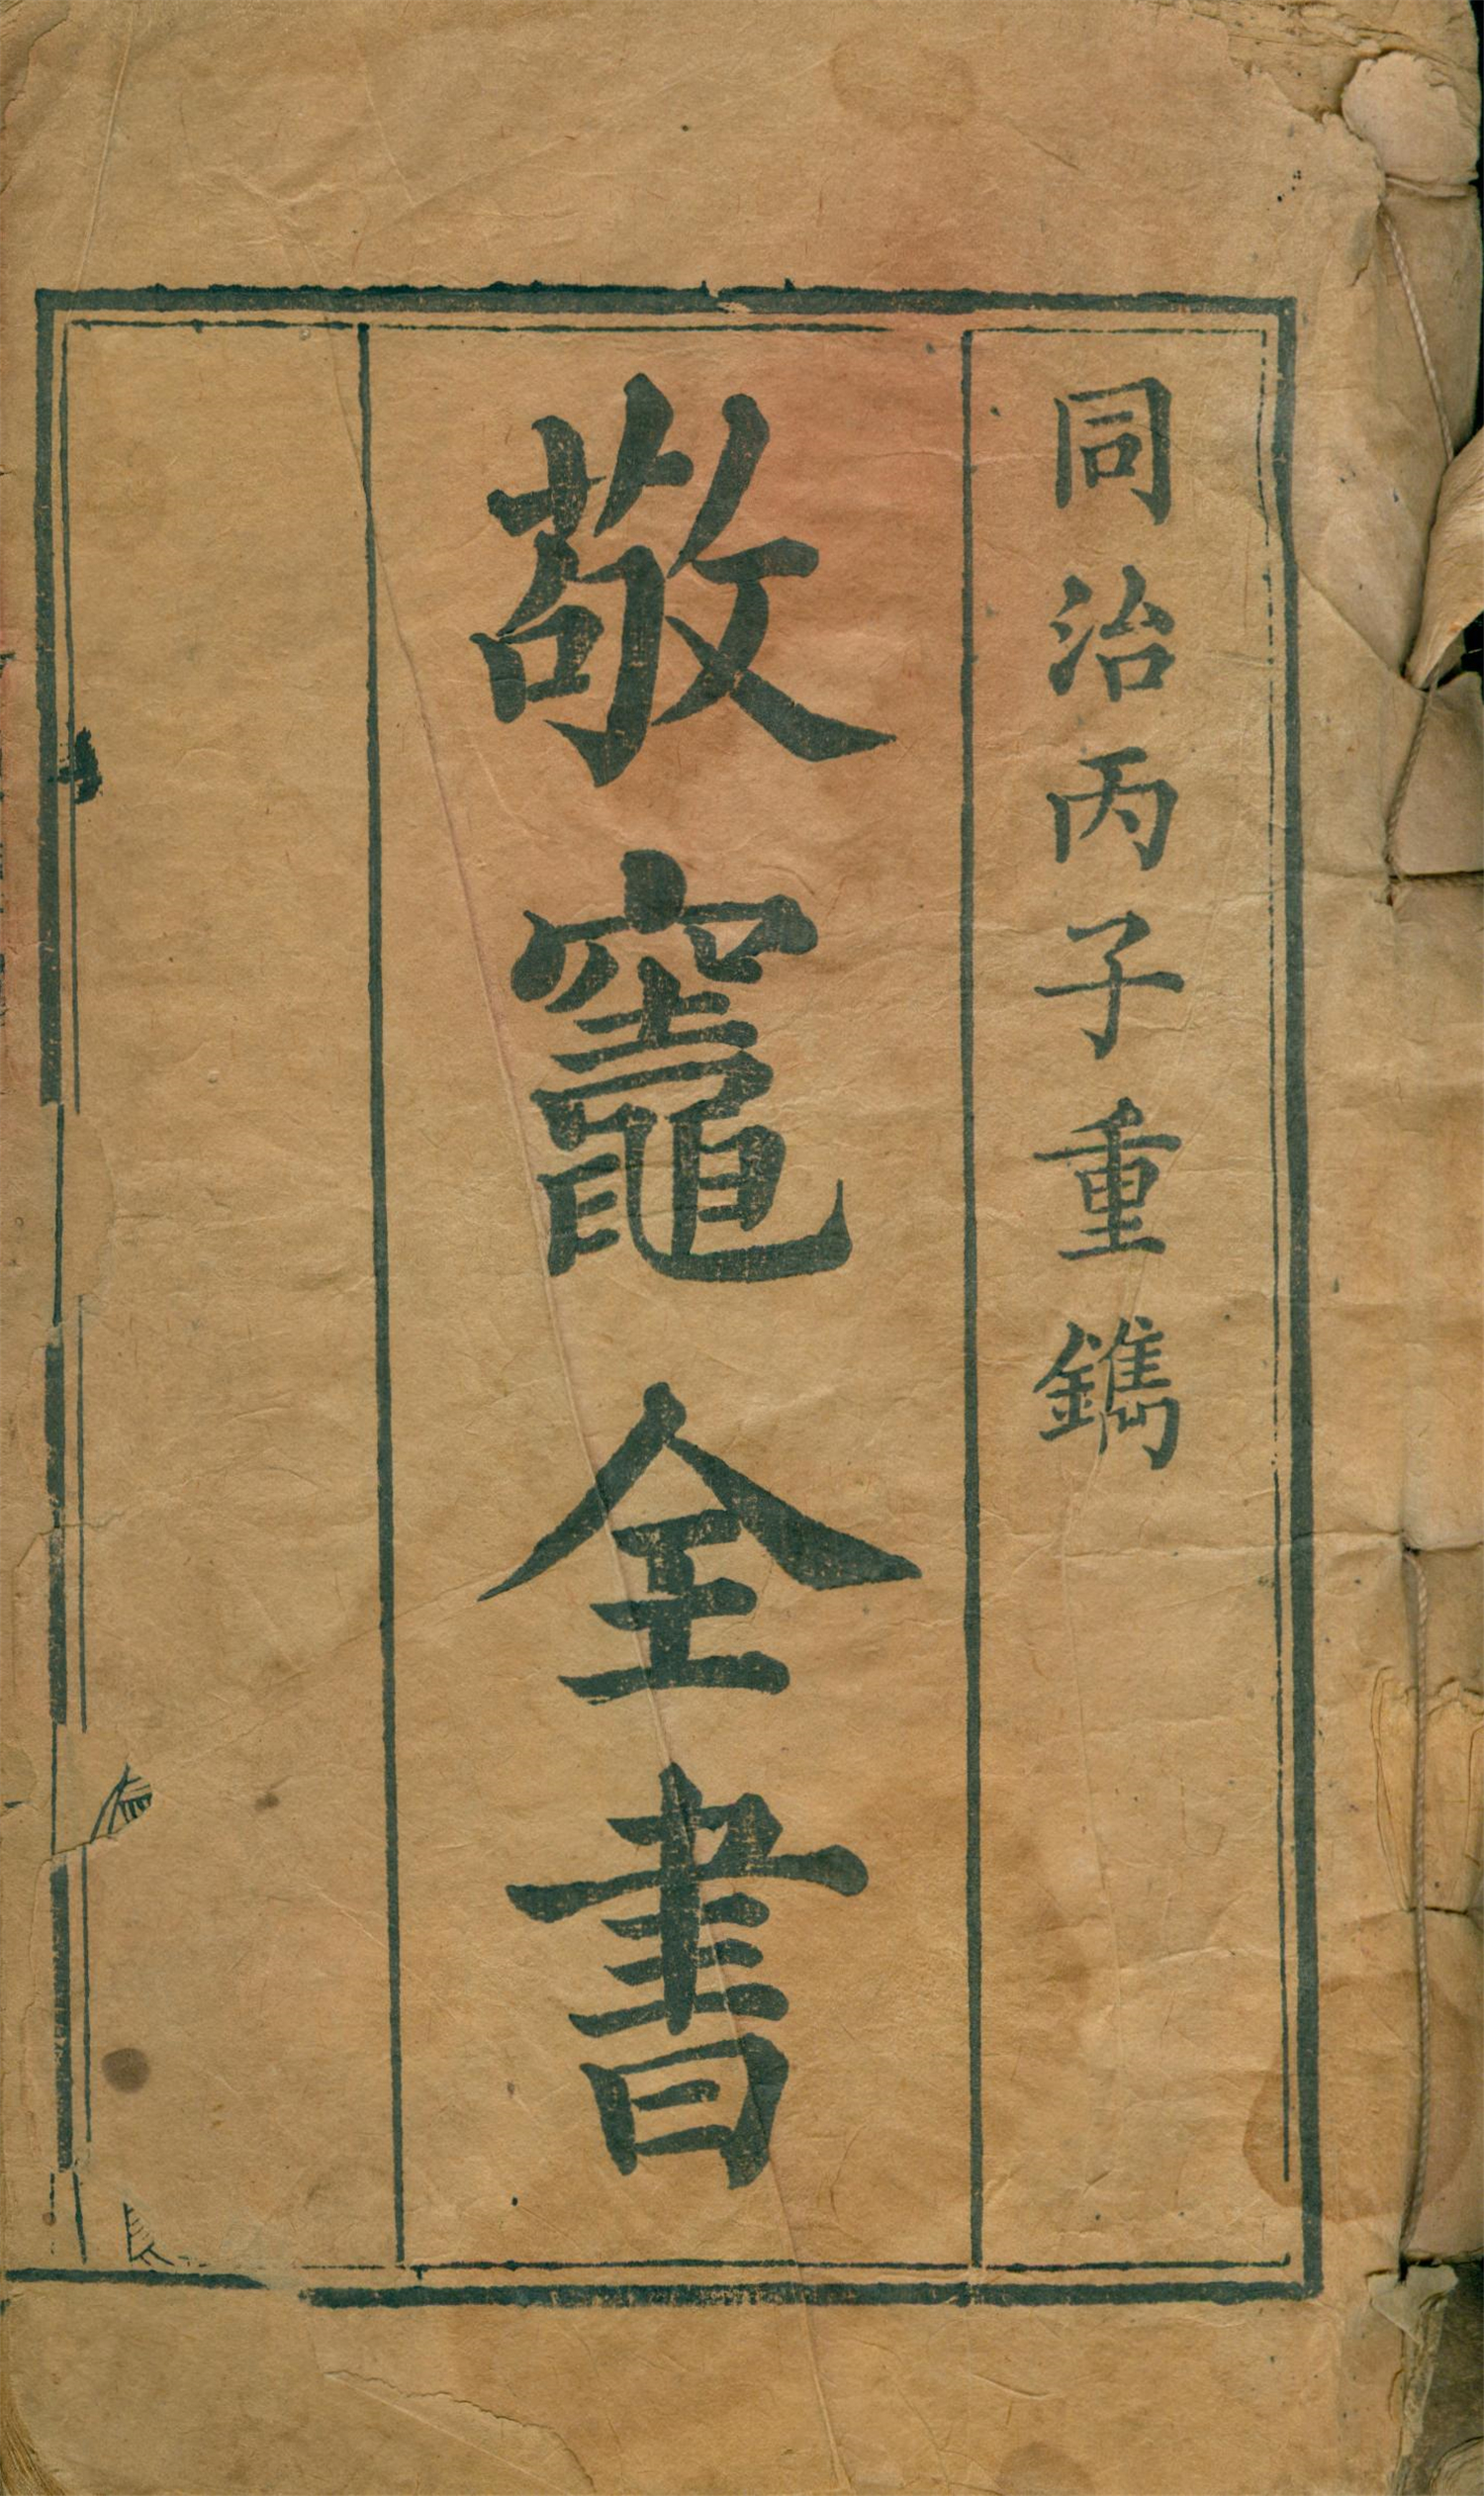 同治丙子重鐫
敬竈全書